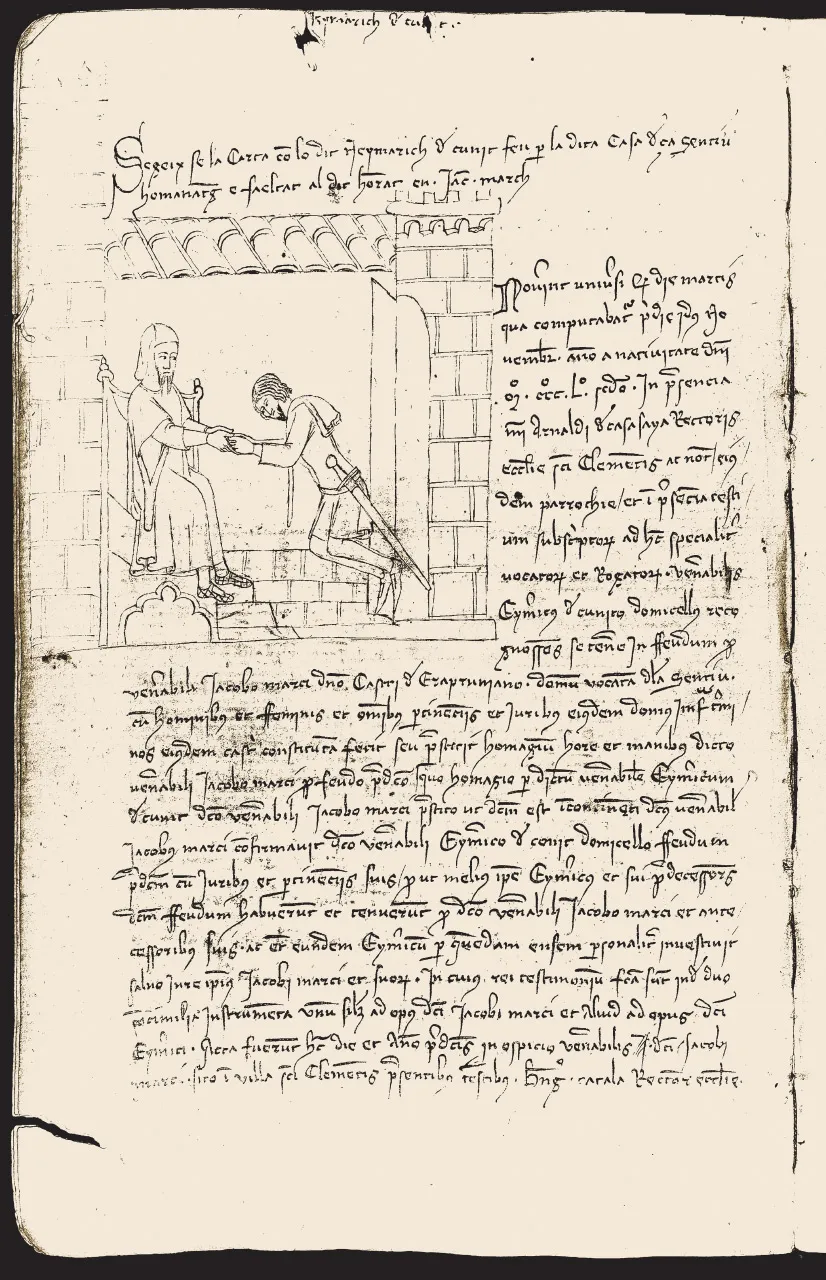 Neymarich d cunit
Segeix se la Carta cō lo dit Neymarich d cunit feu p la dita Casa d ça Sentiu
homanatg e faeltat al dit honrat en Jac march
Novint univsi Qp die martis
qua computabat pdie idus No
vembr. anno a nativitate dni
Mº. cccº. Lº. scdo. In psencia
mi Arnaldi d casasaya Rectoris
ecclie sci Clementis ac not eius
dem parrochie et i psecia testi
um subscptor ad hec specialit
vocator et Rogator. venabilis
Eymicus d cunito domicellus reco
gnossens se tene In ffeudum p
venabili Jacobo marci dno Castri d Eraprunyano. domu vocata dla Sentiu.
cu hominibus et ffeminis et omibus ptinentiis et Juribus eiusdem domus Infra tmi
nos eiusdem casti constituta fecit seu pstitit homagiu hore et manibus dicto
venabili Jacobo marci p feudo pdco quo homagio p dictu venabile Eymicum
d cunit dco venabili Jacobo marci pstito ut dcm est Incontinenti dcus venabil
Jacobus marci cofirmavit dco venabili Eymico d conit domicello ffeudum
pdcm cu Juribus et ptinentiis suis put melius ipe Eymicus et sui pdecessors
dcm ffeudum habuerut et tenuerut p dco venabili Jacobo marci et ante
cessoribus suis. ac et eundem Eymicu p quendam ensem psonalit investivit
salvo Inre ipius Jacobi marci et suor. In cuius rei testimoniu fca sut ind duo
cosimilia Instrumeta unu silz ad opus dci Jacobi marci et Aliud ad opus dci
Eymici. Acta fuerut hec die et Anno pdctis in ospicio venabilis dci Jacobi
marci. sito i villa sci Clementis psentibus testibus. catala Rector ecclie.